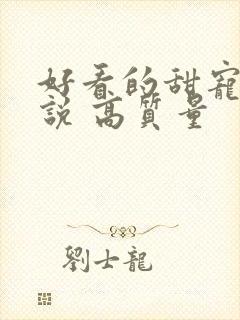 好看的甜寵
說 高質量
劉士龍